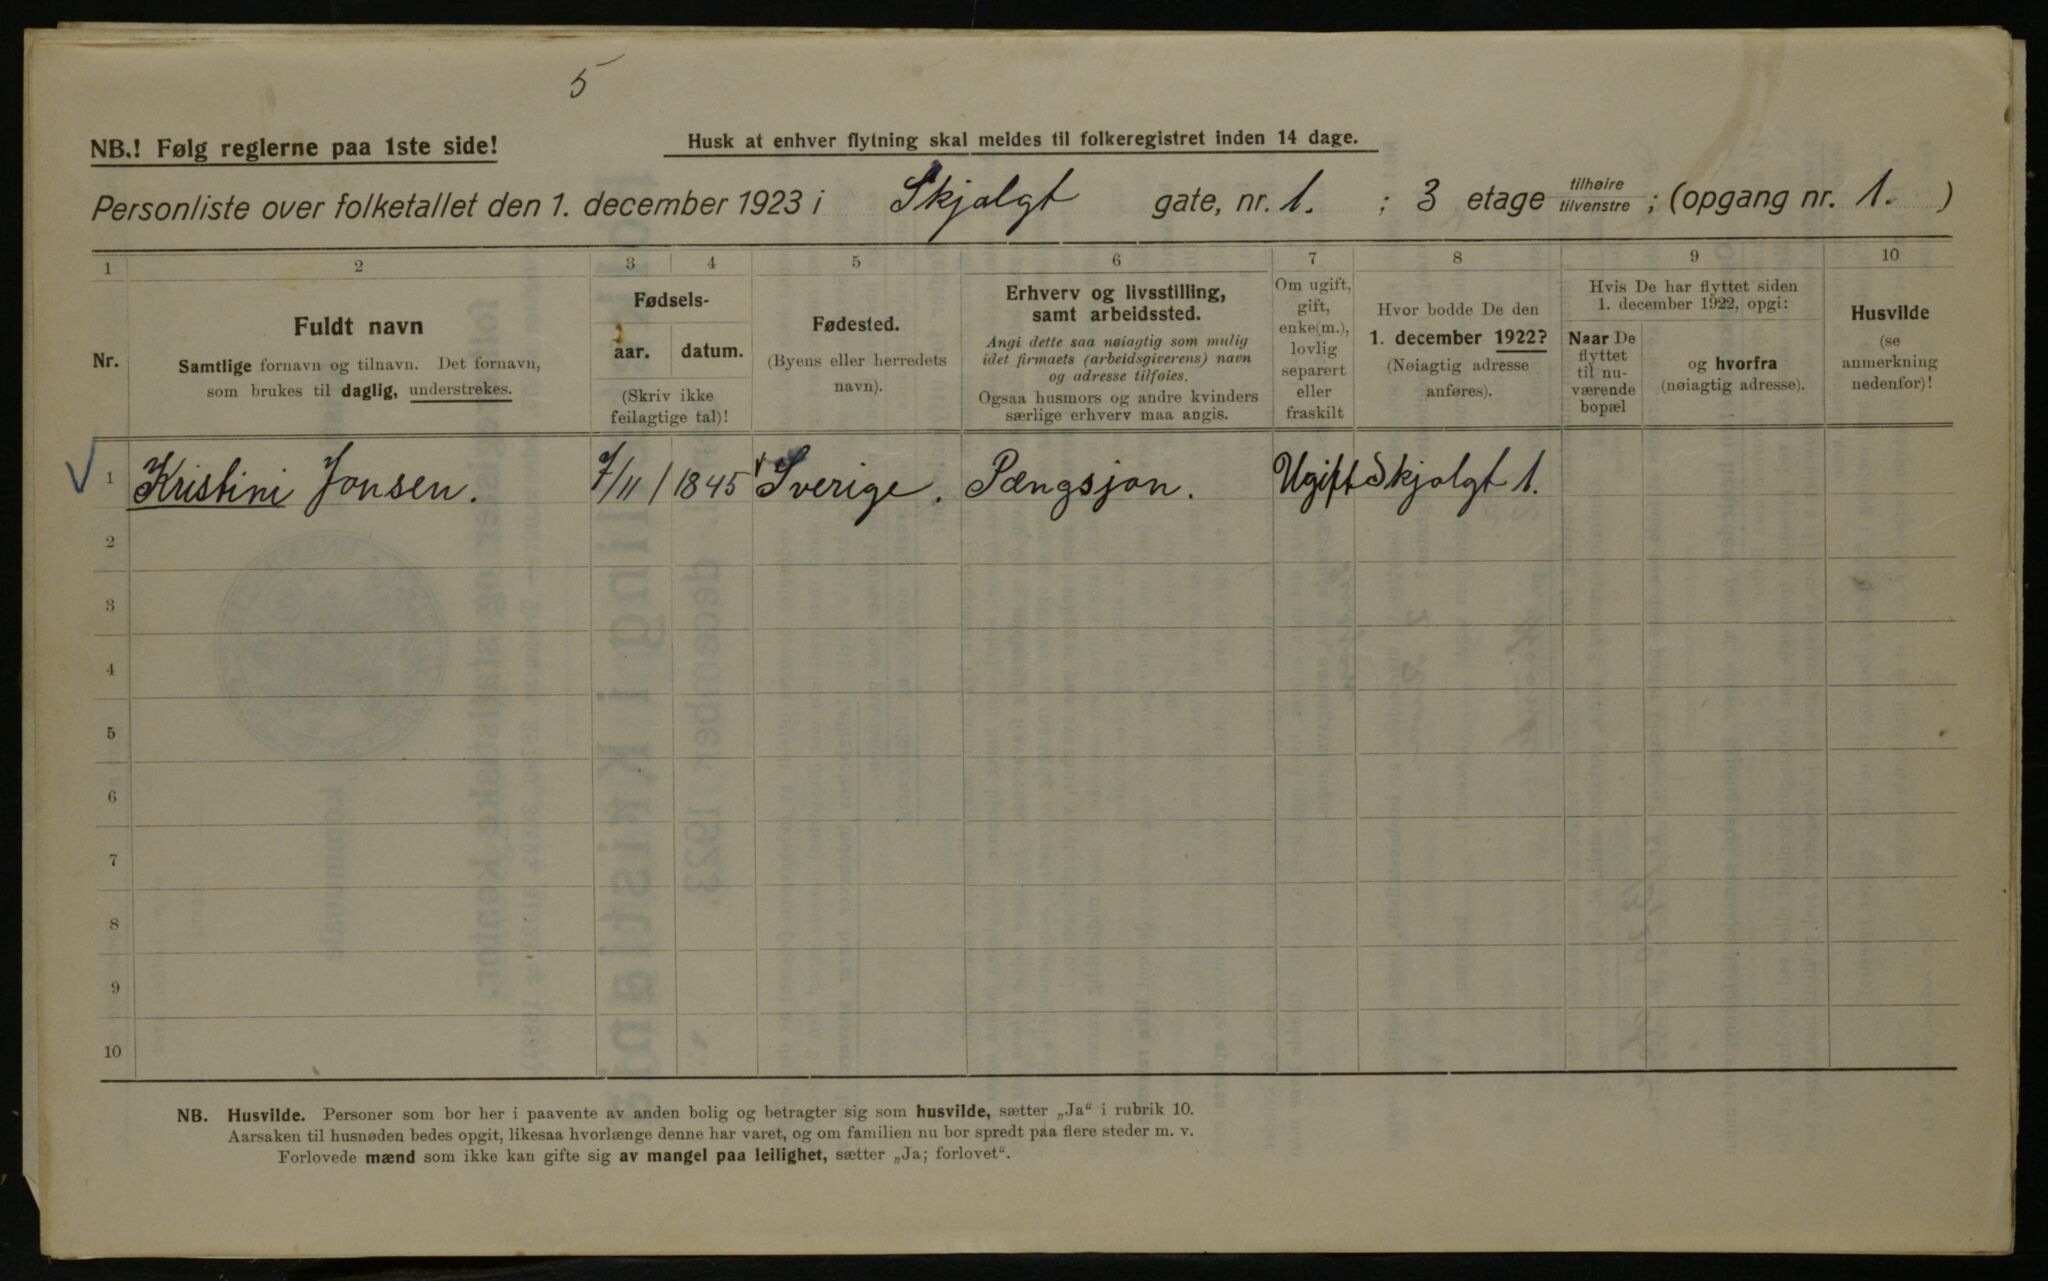 5
NB.! Følg reglerne paa 1ste side!
Husk at enhver flytning skal meldes til folkeregistret inden 14 dage.
Personliste over folketallet den 1. december 1923 i Skjolgt gate, nr. 1. ; 3 etage tilhøire tilvenstre ; (opgang nr. 1. )
1 2 3 4 5 6 7 8 9 10
Nr.
Fuldt navn
Samtlige fornavn og tilnavn. Det fornavn,
som brukes til daglig, understrekes.
Fødsels-
aar. datum.
(Skriv ikke
feilagtige tal)!
Fødested.
(Byens eller herredets
navn).
Erhverv og livsstilling,
samt arbeidssted.
Angi dette saa nøiagtig som mulig
idet firmaets (arbeidsgiverens) navn
og adresse tilføies.
Ogsaa husmors og andre kvinders
særlige erhverv maa angis.
Om ugift,
gift,
enke(m.),
lovlig
separert
eller
fraskilt
Hvor bodde De den
1. december 1922?
(Nøiagtig adresse
anføres).
Hvis De har flyttet siden
1. december 1922, opgi:
Naar De
flyttet
til nu-
værende
bopæl
og hvorfra
(nøiagtig adresse).
Husvilde
(se
anmerkning
nedenfor)!
1 Kristini Jonsen. 7/11/1845 Sverige. Pængsjon. Ugift Skjolgt 1.
2
3
4
5
6
7
8
9
10
NB. Husvilde. Personer som bor her i paavente av anden bolig og betragter sig som husvilde, sætter „Ja“ i rubrik 10.
Aarsaken til husnøden bedes opgit, likesaa hvorlænge denne har varet, og om familien nu bor spredt paa flere steder m. v.
Forlovede mænd som ikke kan gifte sig av mangel paa leilighet, sætter „Ja; forlovet“.